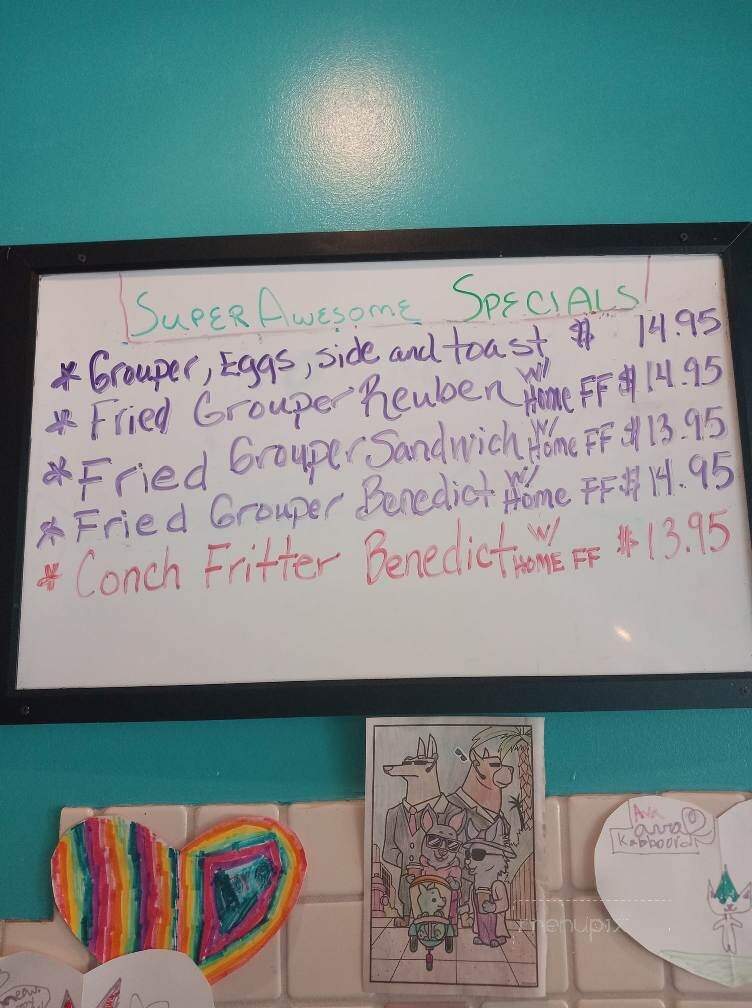 Super Awesome Specials
* Grouper, Eggs, side and toast $ 14.95
* Fried Grouper Reuben w/ Home FF $ 14.95
* Fried Grouper Sandwich w/ Home FF $ 13.95
* Fried Grouper Benedict w/ Home FF $ 14.95
* Conch Fritter Benedict w/ HOME FF $ 13.95
Ava
ava
menupix